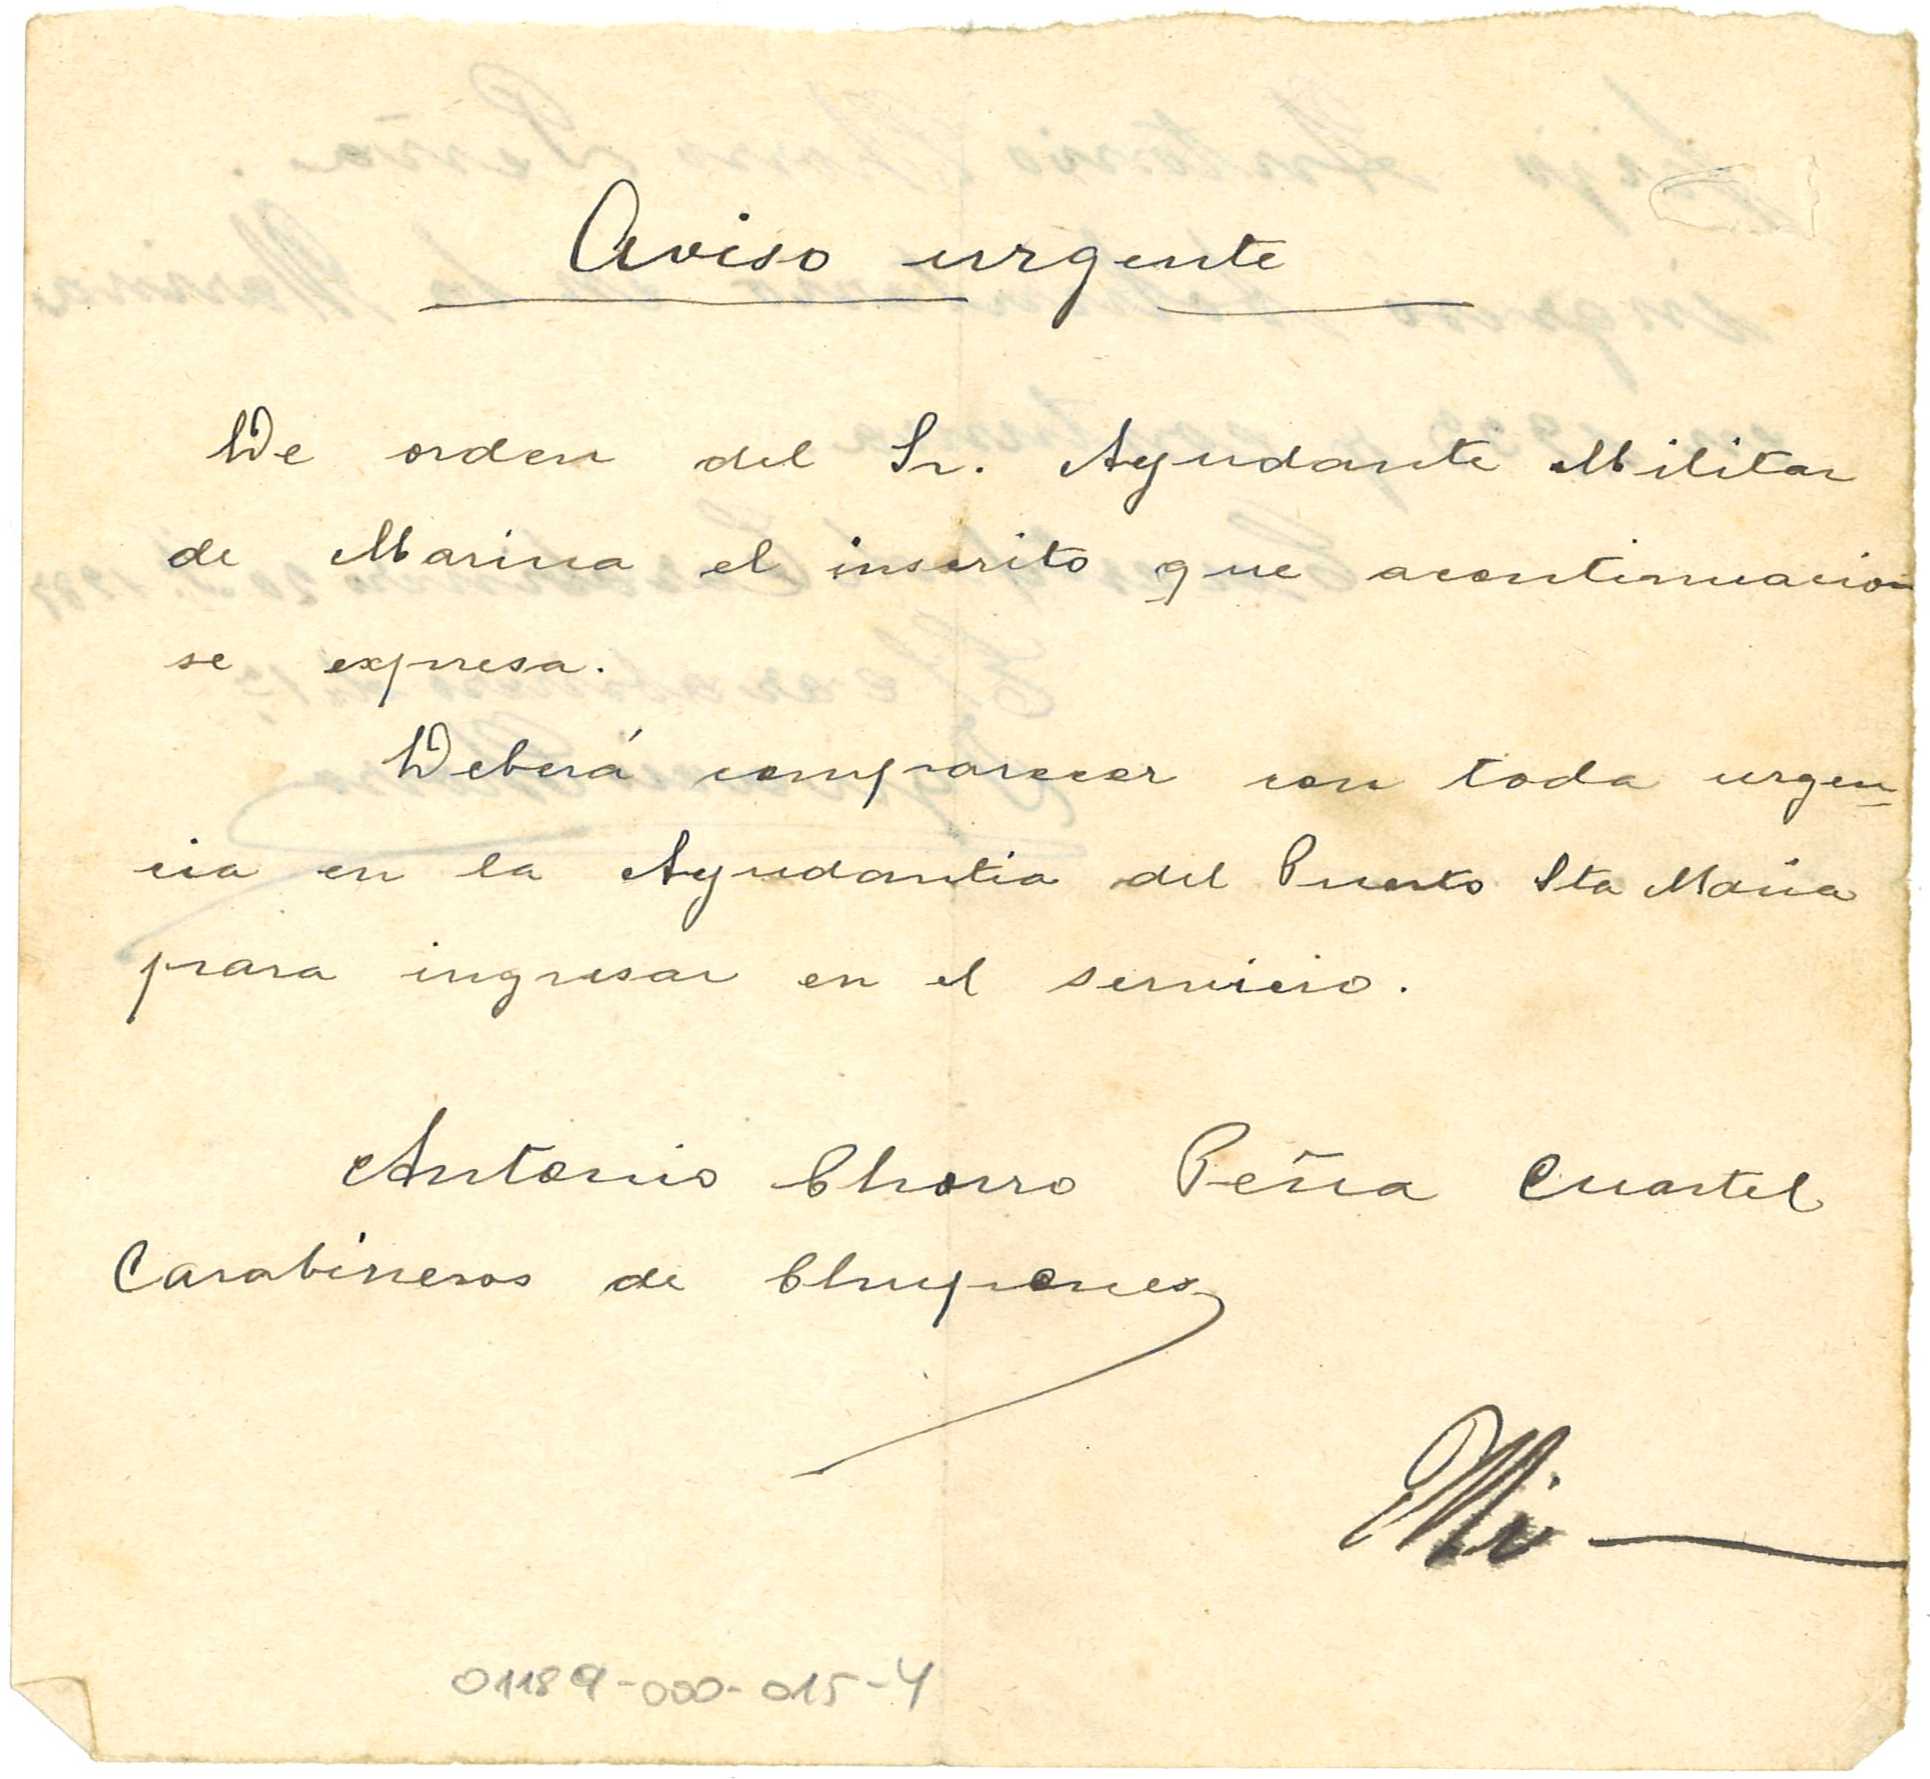 Aviso urgente
De orden del Sr. Ayudante Militar
de Marina el inscrito que acontinuacion
se expresa.
Deberá comparecer con toda urgen-
cia en la Ayudantia del Puerto Sta Maria
para ingresar en el servicio.
Antonio Chorro Peña Cuartel
Carabineros de Chupones
01189-000-015-4